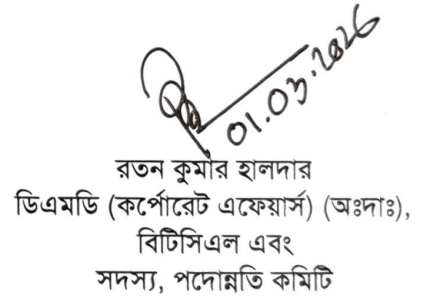 01.03.2026
রতন কুমার হালদার
ডিএমডি (কর্পোরেট এফেয়ার্স) (অঃদাঃ),
বিটিসিএল এবং
সদস্য, পদোন্নতি কমিটি